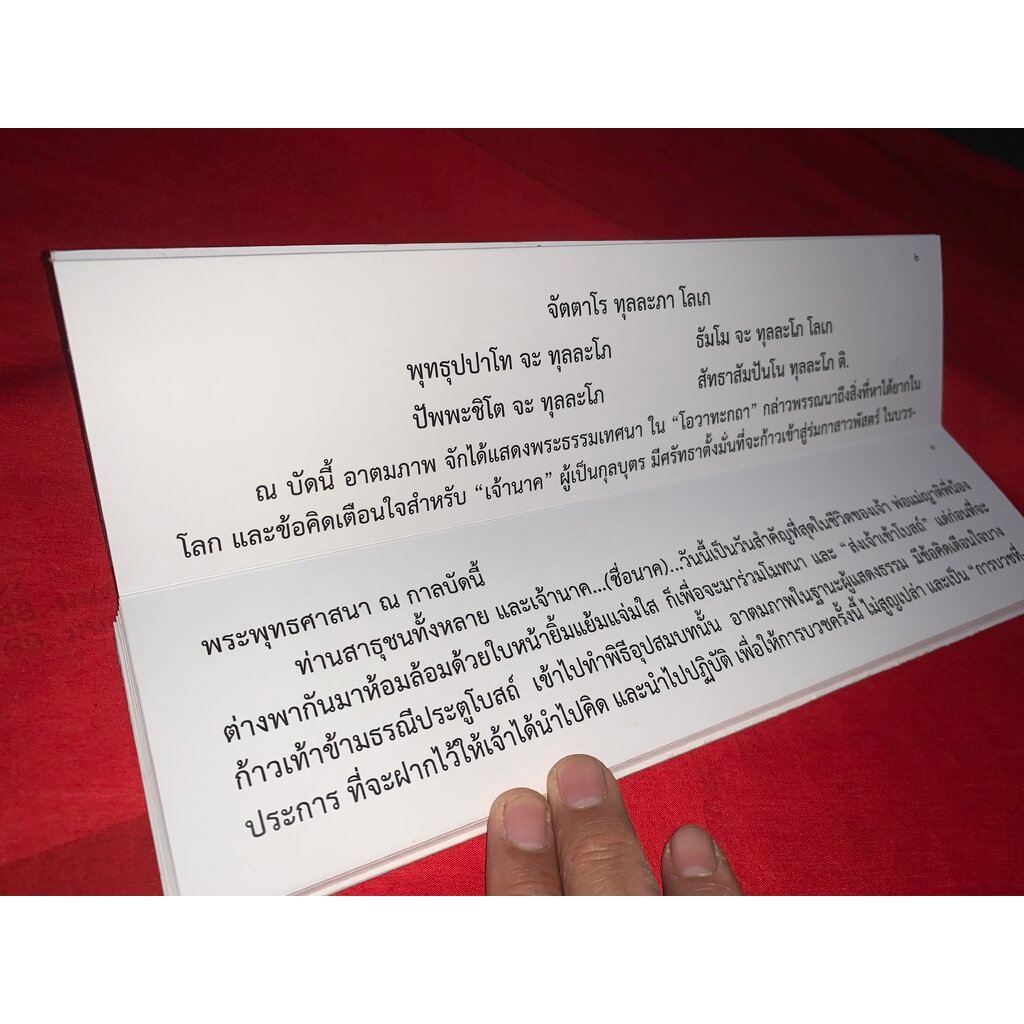 ๒
จัตตาโร ทุลละภา โลเก
พุทธุปปาโท จะ ทุลละโภ ธัมโม จะ ทุลละโภ โลเก
ปัพพะชิโต จะ ทุลละโภ สัทธาสัมปันโน ทุลละโภ ติ.
ณ บัดนี้ อาตมภาพ จักได้แสดงพระธรรมเทศนา ใน “โอวาทะกถา” กล่าวพรรณนาถึงสิ่งที่หาได้ยากใน
โลก และข้อคิดเตือนใจสำหรับ “เจ้านาค” ผู้เป็นกุลบุตร มีศรัทธาตั้งมั่นที่จะก้าวเข้าสู่ร่มกาสาวพัสตร์ ในบวร-
๓
พระพุทธศาสนา ณ กาลบัดนี้
ท่านสาธุชนทั้งหลาย และเจ้านาค...(ชื่อนาค)...วันนี้เป็นวันสำคัญที่สุดในชีวิตของเจ้า พ่อแม่ญาติพี่น้อง
ต่างพากันมาห้อมล้อมด้วยใบหน้ายิ้มแย้มแจ่มใส ก็เพื่อจะมาร่วมโมทนา และ “ส่งเจ้าเข้าโบสถ์” แต่ก่อนที่จะ
ก้าวเท้าข้ามธรณีประตูโบสถ์ เข้าไปทำพิธีอุปสมบทนั้น อาตมภาพในฐานะผู้แสดงธรรม มีข้อคิดเตือนใจบาง
ประการ ที่จะฝากไว้ให้เจ้าได้นำไปคิด และนำไปปฏิบัติ เพื่อให้การบวชครั้งนี้ ไม่สูญเปล่า และเป็น “การบวชที่-